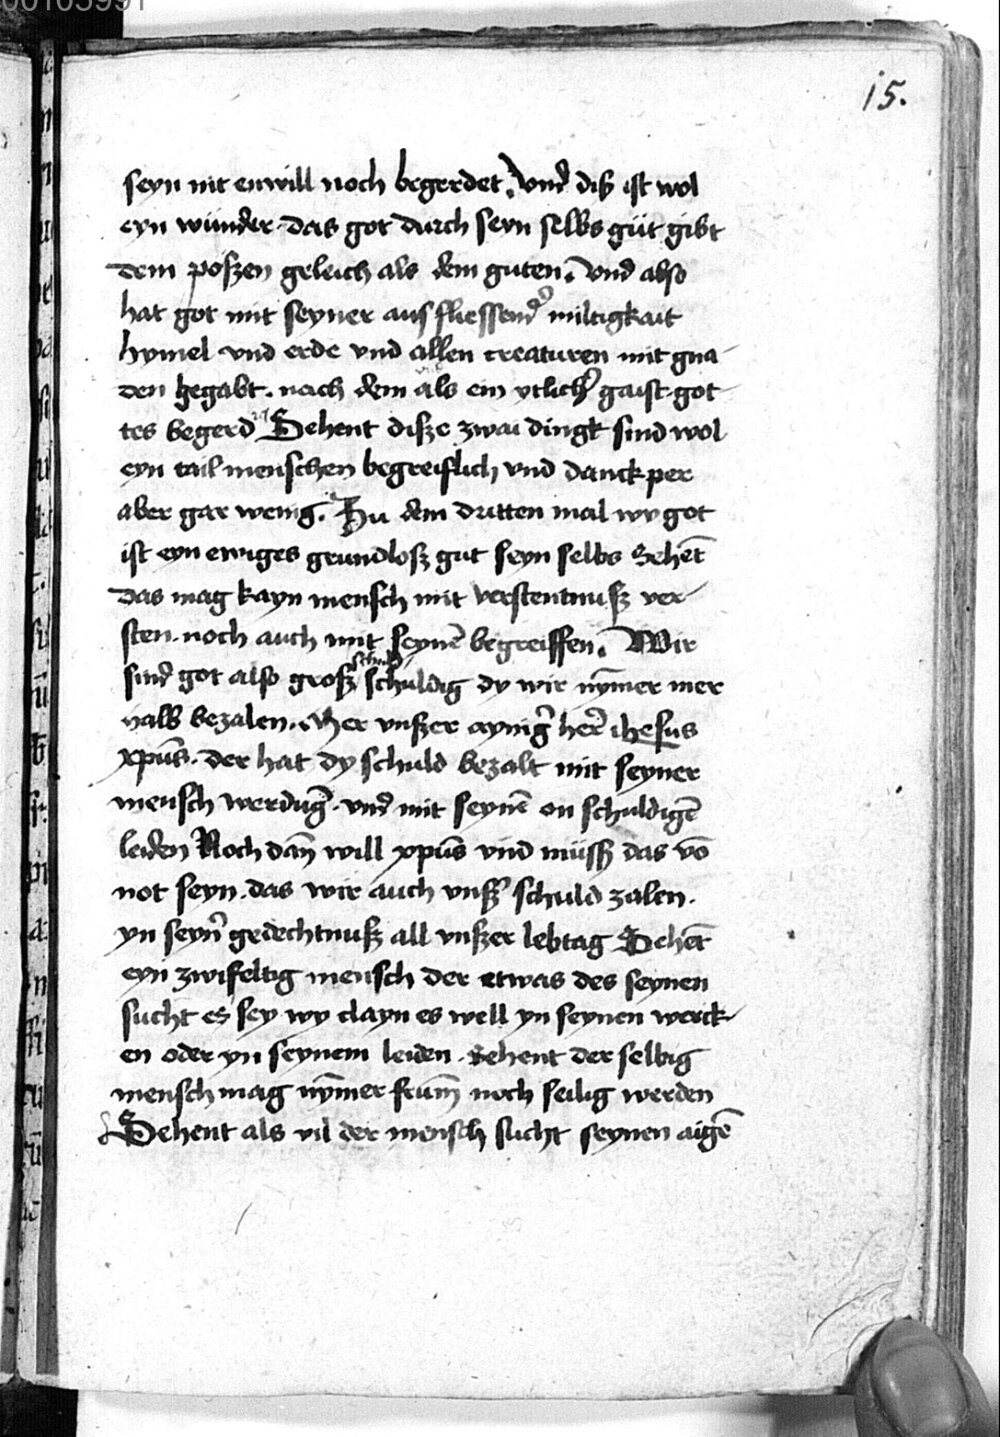 00103991
15.
seyn nit enwill noch begerdet. Vnd diß ist wol
eyn wunder. das got durch seyn selbs güt gibt
dem poszen geleich als dem guten. vnd also
hat got mit seyner aus fliessend miltigkait
hymel vnd erde vnd allen creaturen mit gna
den begabt. nach dem als ein ytlicher gaist got
tes begerd Sehent disze zwai dingk sind wol
eyn tail menschen begreiflich vnd danckper
aber gar wenig. Zu dem dritten mal wy got
ist eyn ewiges grundlosz gut seyn selbs Sehēt
das mag kayn mensch mit verstentnusz ver
sten. noch auch mit seynē begreiffen. Wir
sind got also grosz schuldig dy wir nȳmer mer
halb bezalen. Aber vnszer aynigʼ herʼ ihesus
xpūs. der hat dy schuld bezalt mit seyner
mensch werdūg. vnd mit seynē on schuldigē
leiden Noch dañ will xpūs vnd müsz das vō
not seyn. das wir auch vnszʼ schuld zalen.
yn seynʼ gedechtnusz all vnszer lebtag Sehēt
eyn zwifeltig mensch der etwas des seynen
sucht es sey wy clayn es well yn seynen werck
en oder yn seynem leiden. Sehent der selbig
mensch mag nȳmer frum̄ noch seilig werden
Sehent als vil der mensch sucht seynen aigē